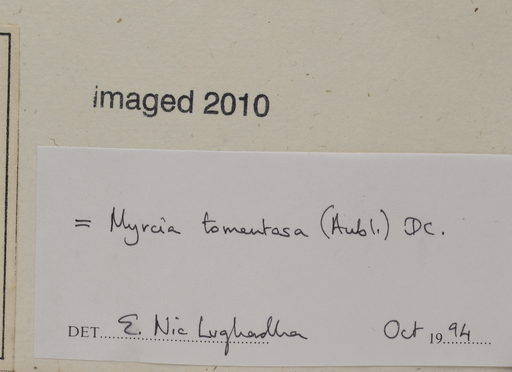 imaged 2010
= Myrcia tomentosa (Aubl.) DC.
DET. E. Nic Lughadha Oct 1994